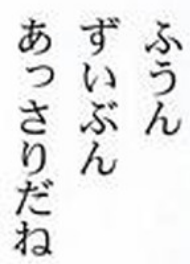 ふうん
ずいぶん
あっさりだね